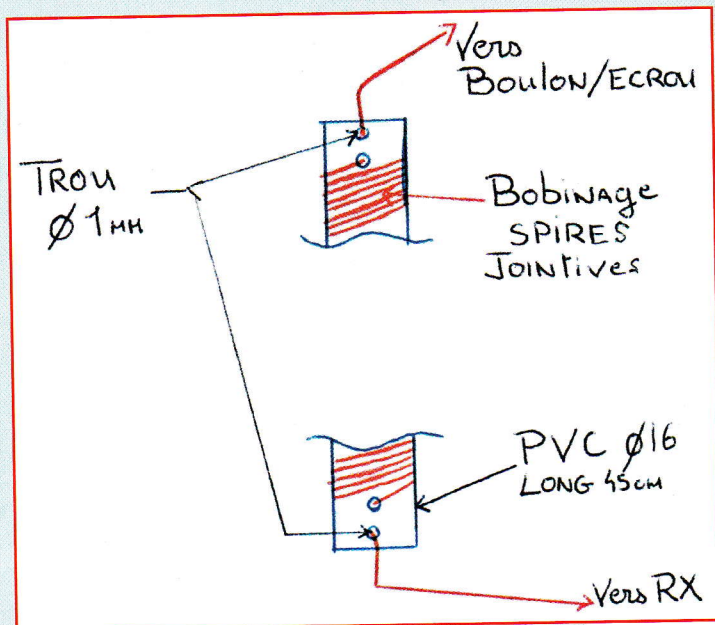 Vers
Boulon/Ecrou
Trou
Ø 1mm
Bobinage
Spires
Jointives
PVC Ø16
Long 45cm
Vers RX